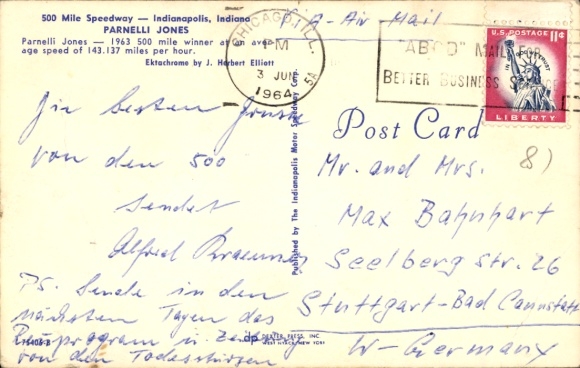 500 Mile Speedway — Indianapolis, Indiana
PARNELLI JONES
Parnelli Jones — 1963 500 mile winner at an average speed of 143.137 miles per hour.
Ektachrome by J. Harbert Elliott
A - Air - Mail
CHICAGO, ILL.
PM
3 JUN
1964
"ABCD" MAIL FOR
BETTER BUSINESS
U.S. POSTAGE 11¢
IN GOD WE TRUST
LIBERTY
Post Card
Published by The Indianapolis Motor Speedway Corp.
Die besten Grüsse
von den 500
sendet
Alfred
PS. Sende in den
nächsten Tagen das
Rennprogramm u. Zeitung
von den Todesstürzen
Mr. and Mrs.
Max Bahnhart
Seelberg str. 26
Stuttgart-Bad Cannstatt
W-Germany
8)
dp DEXTER PRESS, INC.
WEST NYACK, NEW YORK